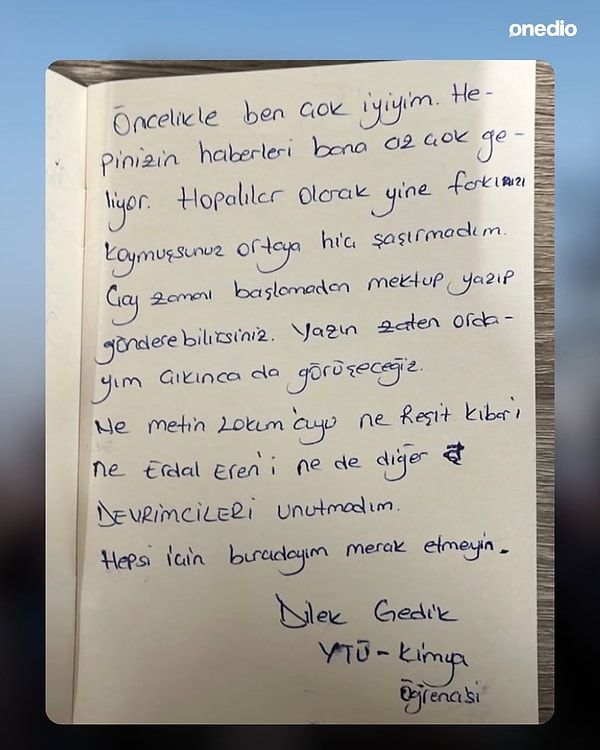 onedio
Öncelikle ben çok iyiyim. He-
pinizin haberleri bana az çok ge-
liyor. Hopalılar olarak yine farkınızı
koymuşsunuz ortaya hiç şaşırmadım.
Çay zamanı başlamadan mektup yazıp
gönderebilirsiniz. Yazın zaten orda-
yım çıkınca da görüşeceğiz.
Ne metin Lokum'cuyu ne Reşit Kibar'ı
ne Erdal Eren'i ne de diğer
DEVRİMCİLERİ unutmadım.
Hepsi için buradayım merak etmeyin.
Dilek Gedik
YTÜ - Kimya
Öğrencisi